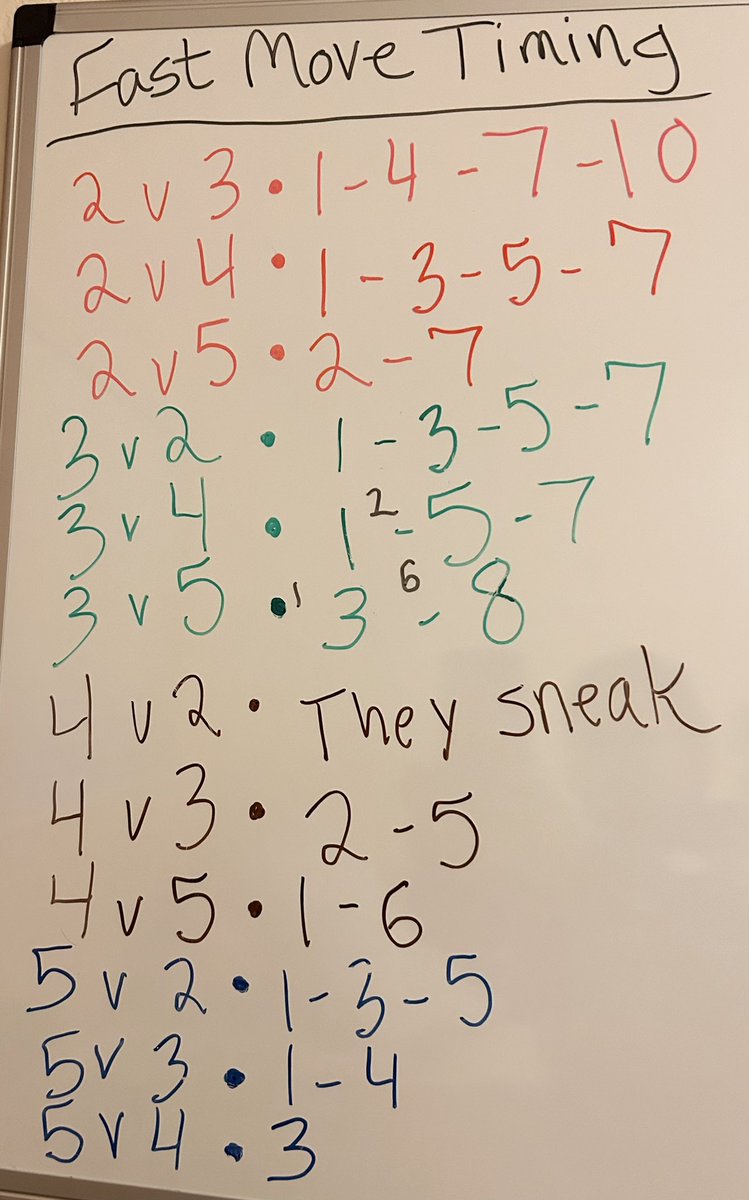 Fast Move Timing
2 v 3 • 1 - 4 - 7 - 10
2 v 4 • 1 - 3 - 5 - 7
2 v 5 • 2 - 7
3 v 2 • 1 - 3 - 5 - 7
3 v 4 • 1 2 - 5 - 7
3 v 5 • 1 3 6 - 8
4 v 2 • They sneak
4 v 3 • 2 - 5
4 v 5 • 1 - 6
5 v 2 • 1 - 3 - 5
5 v 3 • 1 - 4
5 v 4 • 3